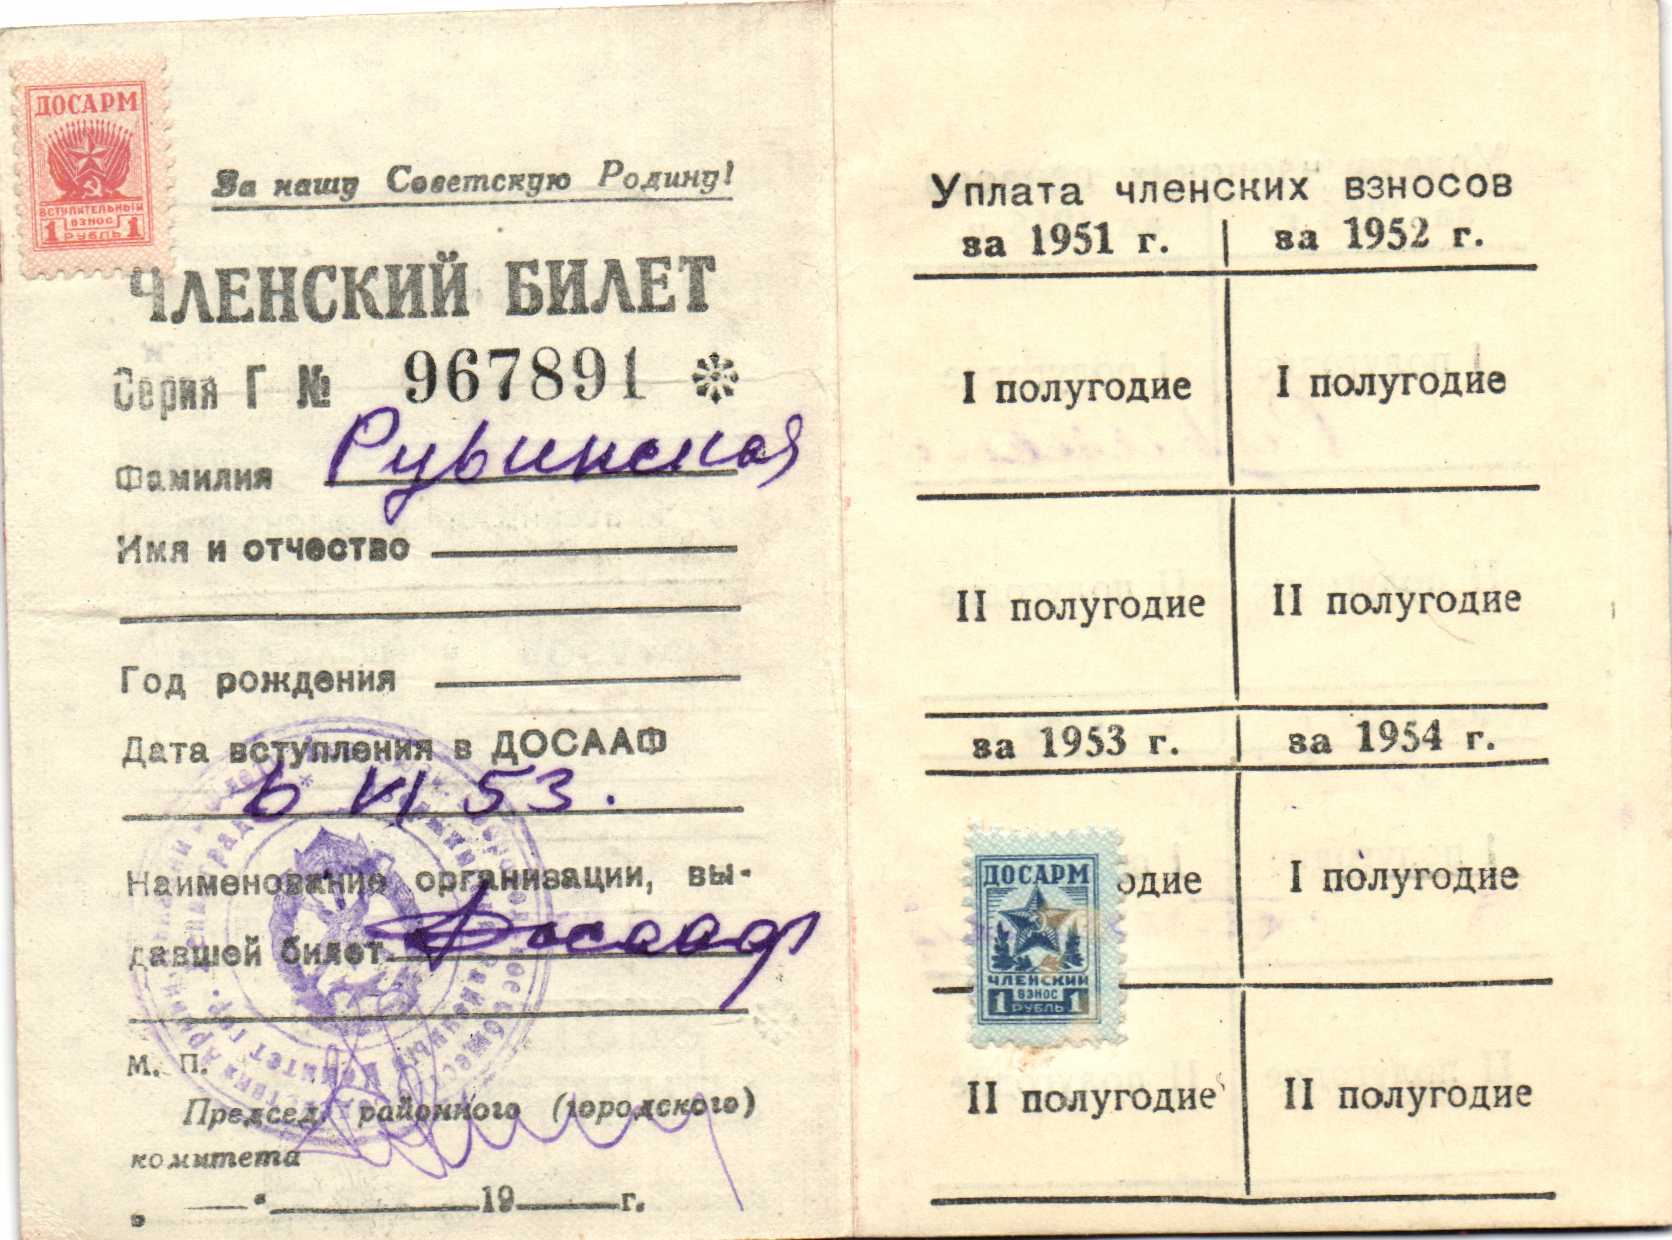 ДОСАРМ
ВСТУПИТЕЛЬНЫЙ
ВЗНОС
1 РУБЛЬ 1
За нашу Советскую Родину!
ЧЛЕНСКИЙ БИЛЕТ
Серия Г № 967891
Фамилия Рувинская
Имя и отчество
Год рождения
Дата вступления в ДОСААФ
6 VI 53.
Наименование организации, вы-
давшей билет Досааф
М. П.
Председ. районного (городского)
комитета
„ — “ 19 г.
Уплата членских взносов
за 1951 г. за 1952 г.
I полугодие I полугодие
II полугодие II полугодие
за 1953 г. за 1954 г.
ДОСАРМ
ЧЛЕНСКИЙ
ВЗНОС
1 РУБЛЬ 1
одие I полугодие
II полугодие II полугодие